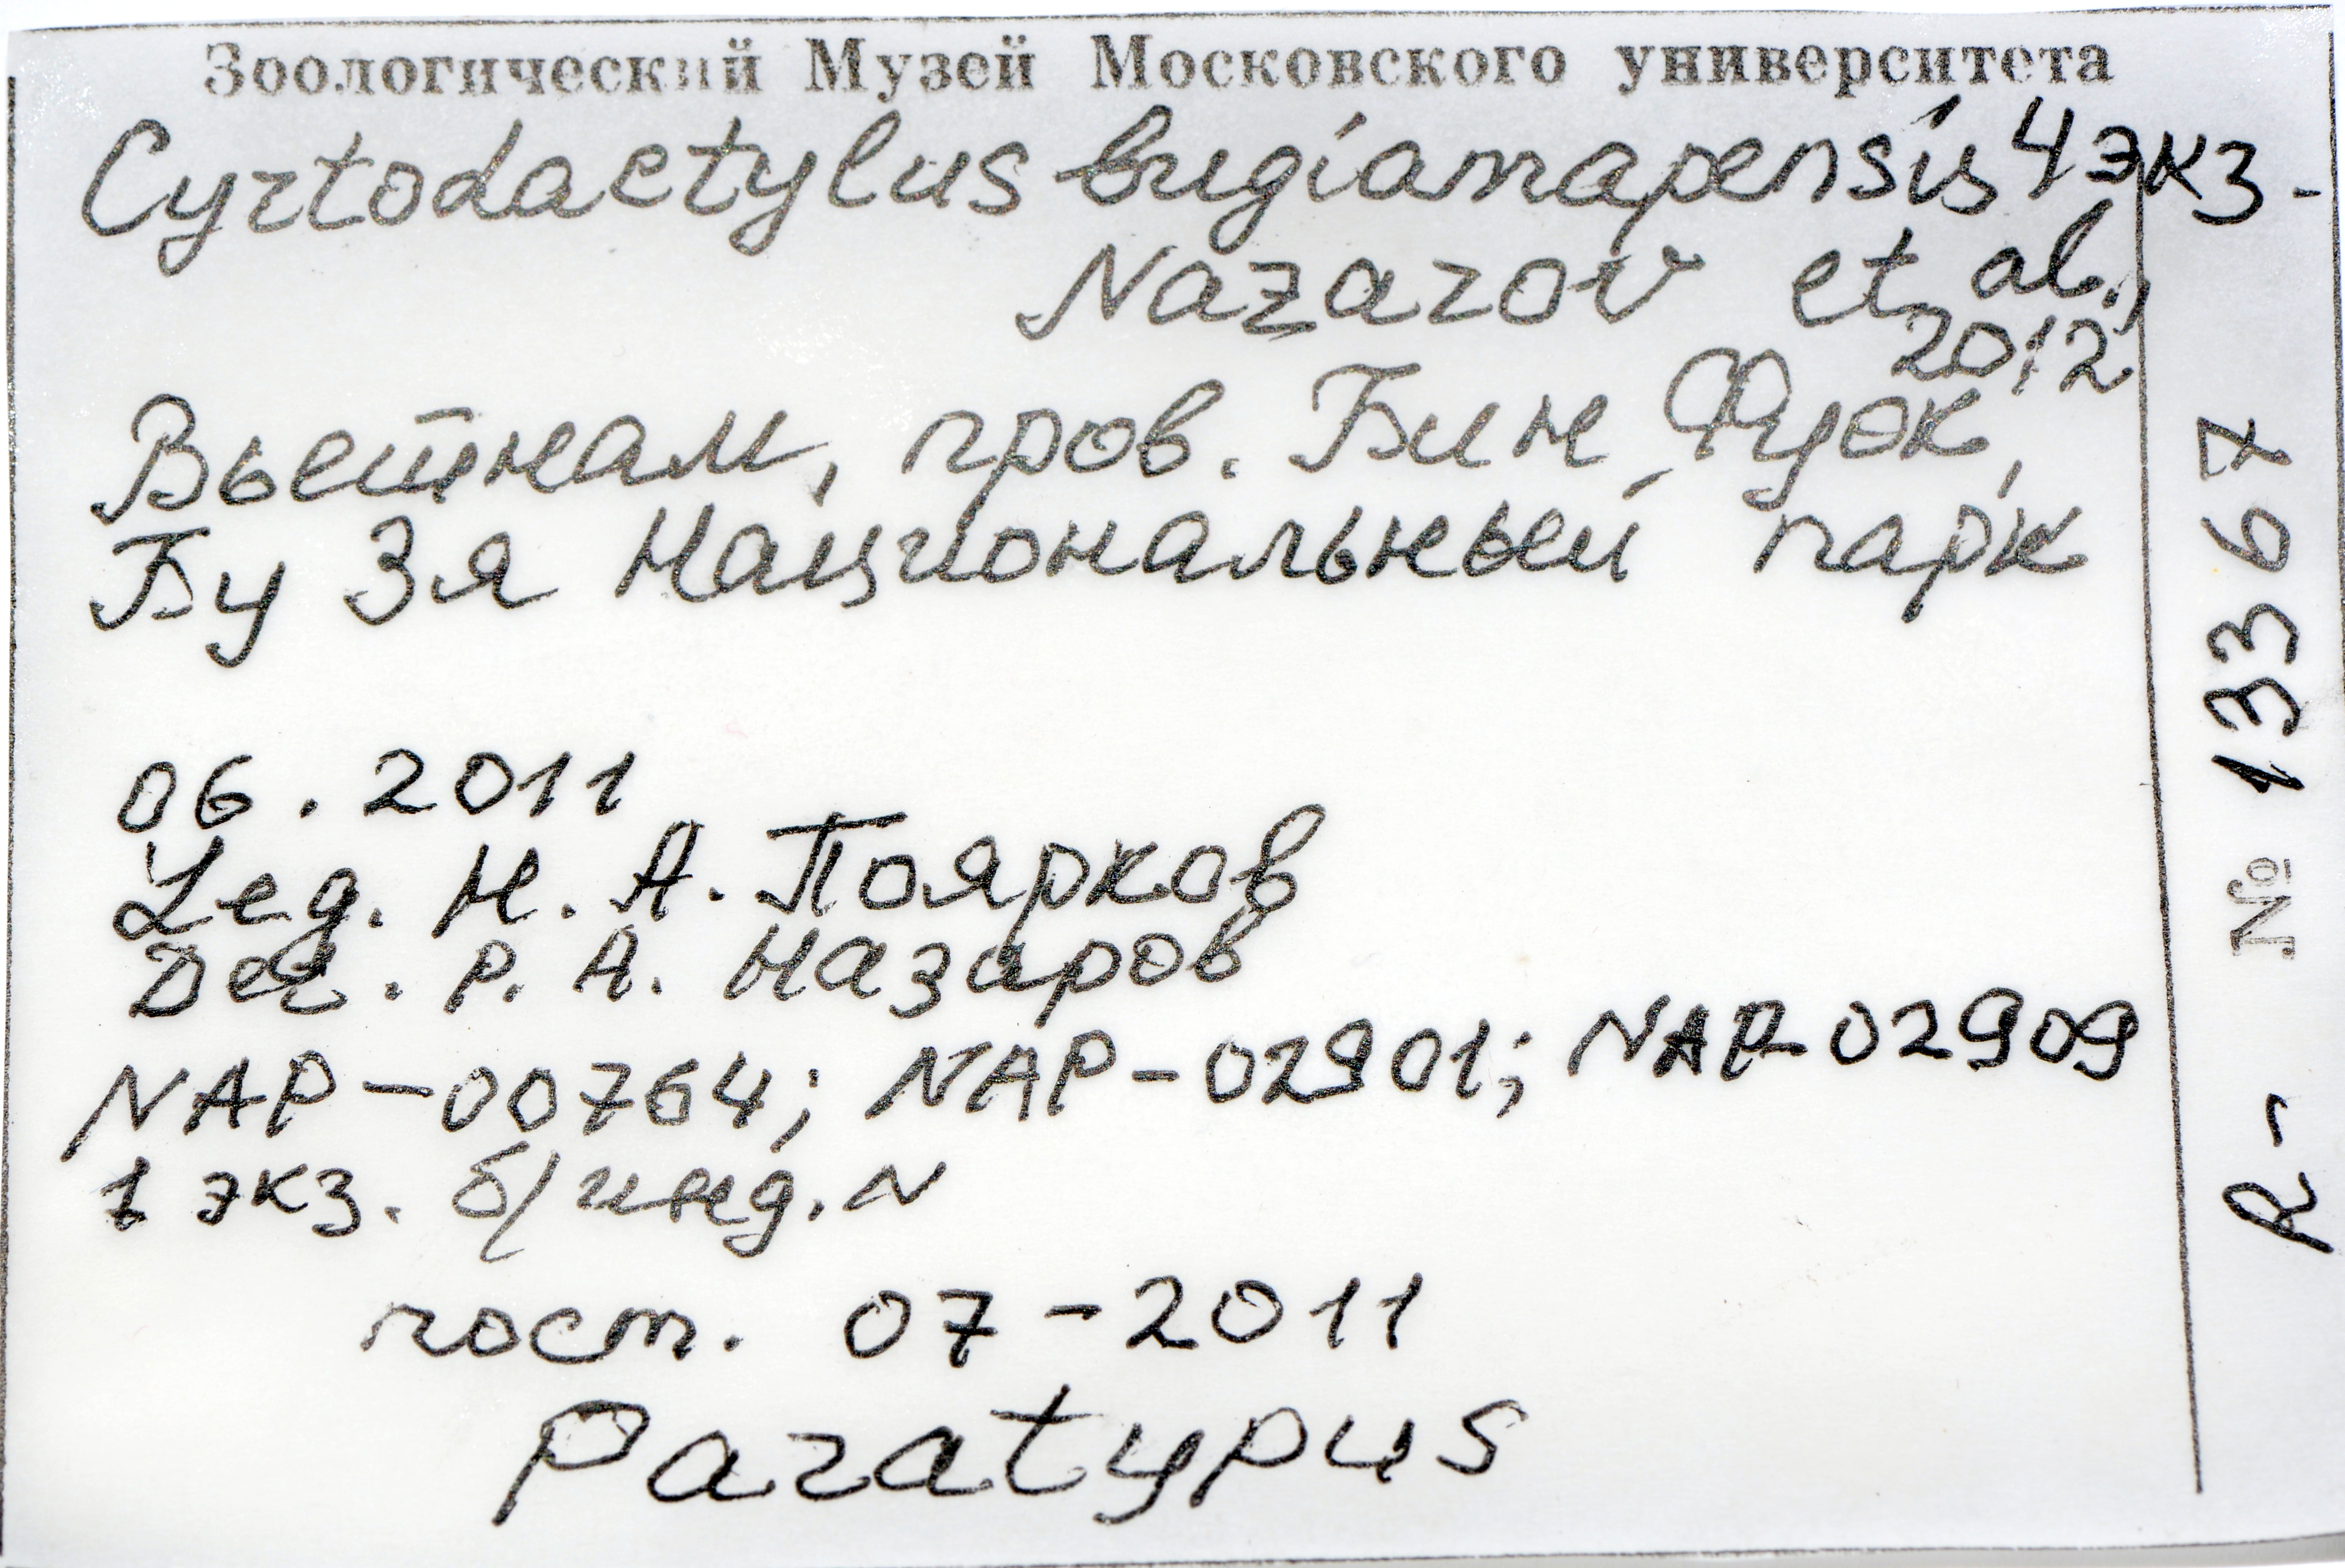 Зоологический Музей Московского университета
Cyrtodactylus bugiamapensis 4 экз.
Nazarov et al.,
2012
Вьетнам, пров. Бин Фуок,
Бу Зя Национальный парк
06.2011
Leg. Н. А. Поярков
Det. Р. А. Назаров
NAP-00764; NAP-02901; NAP-02909
1 экз. б/инд. N
пост. 07-2011
Paratypus
R- № 13367